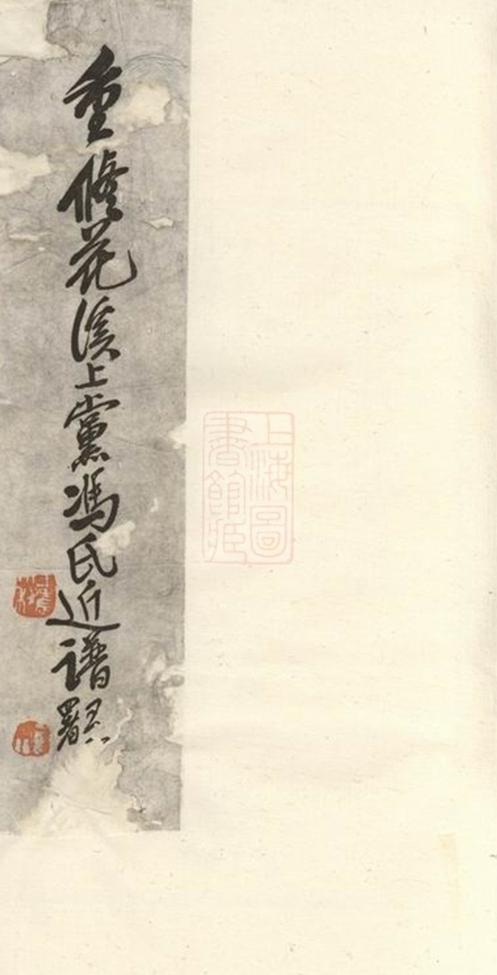 重修花溪上黨馮氏近譜
署
上海圖書館藏